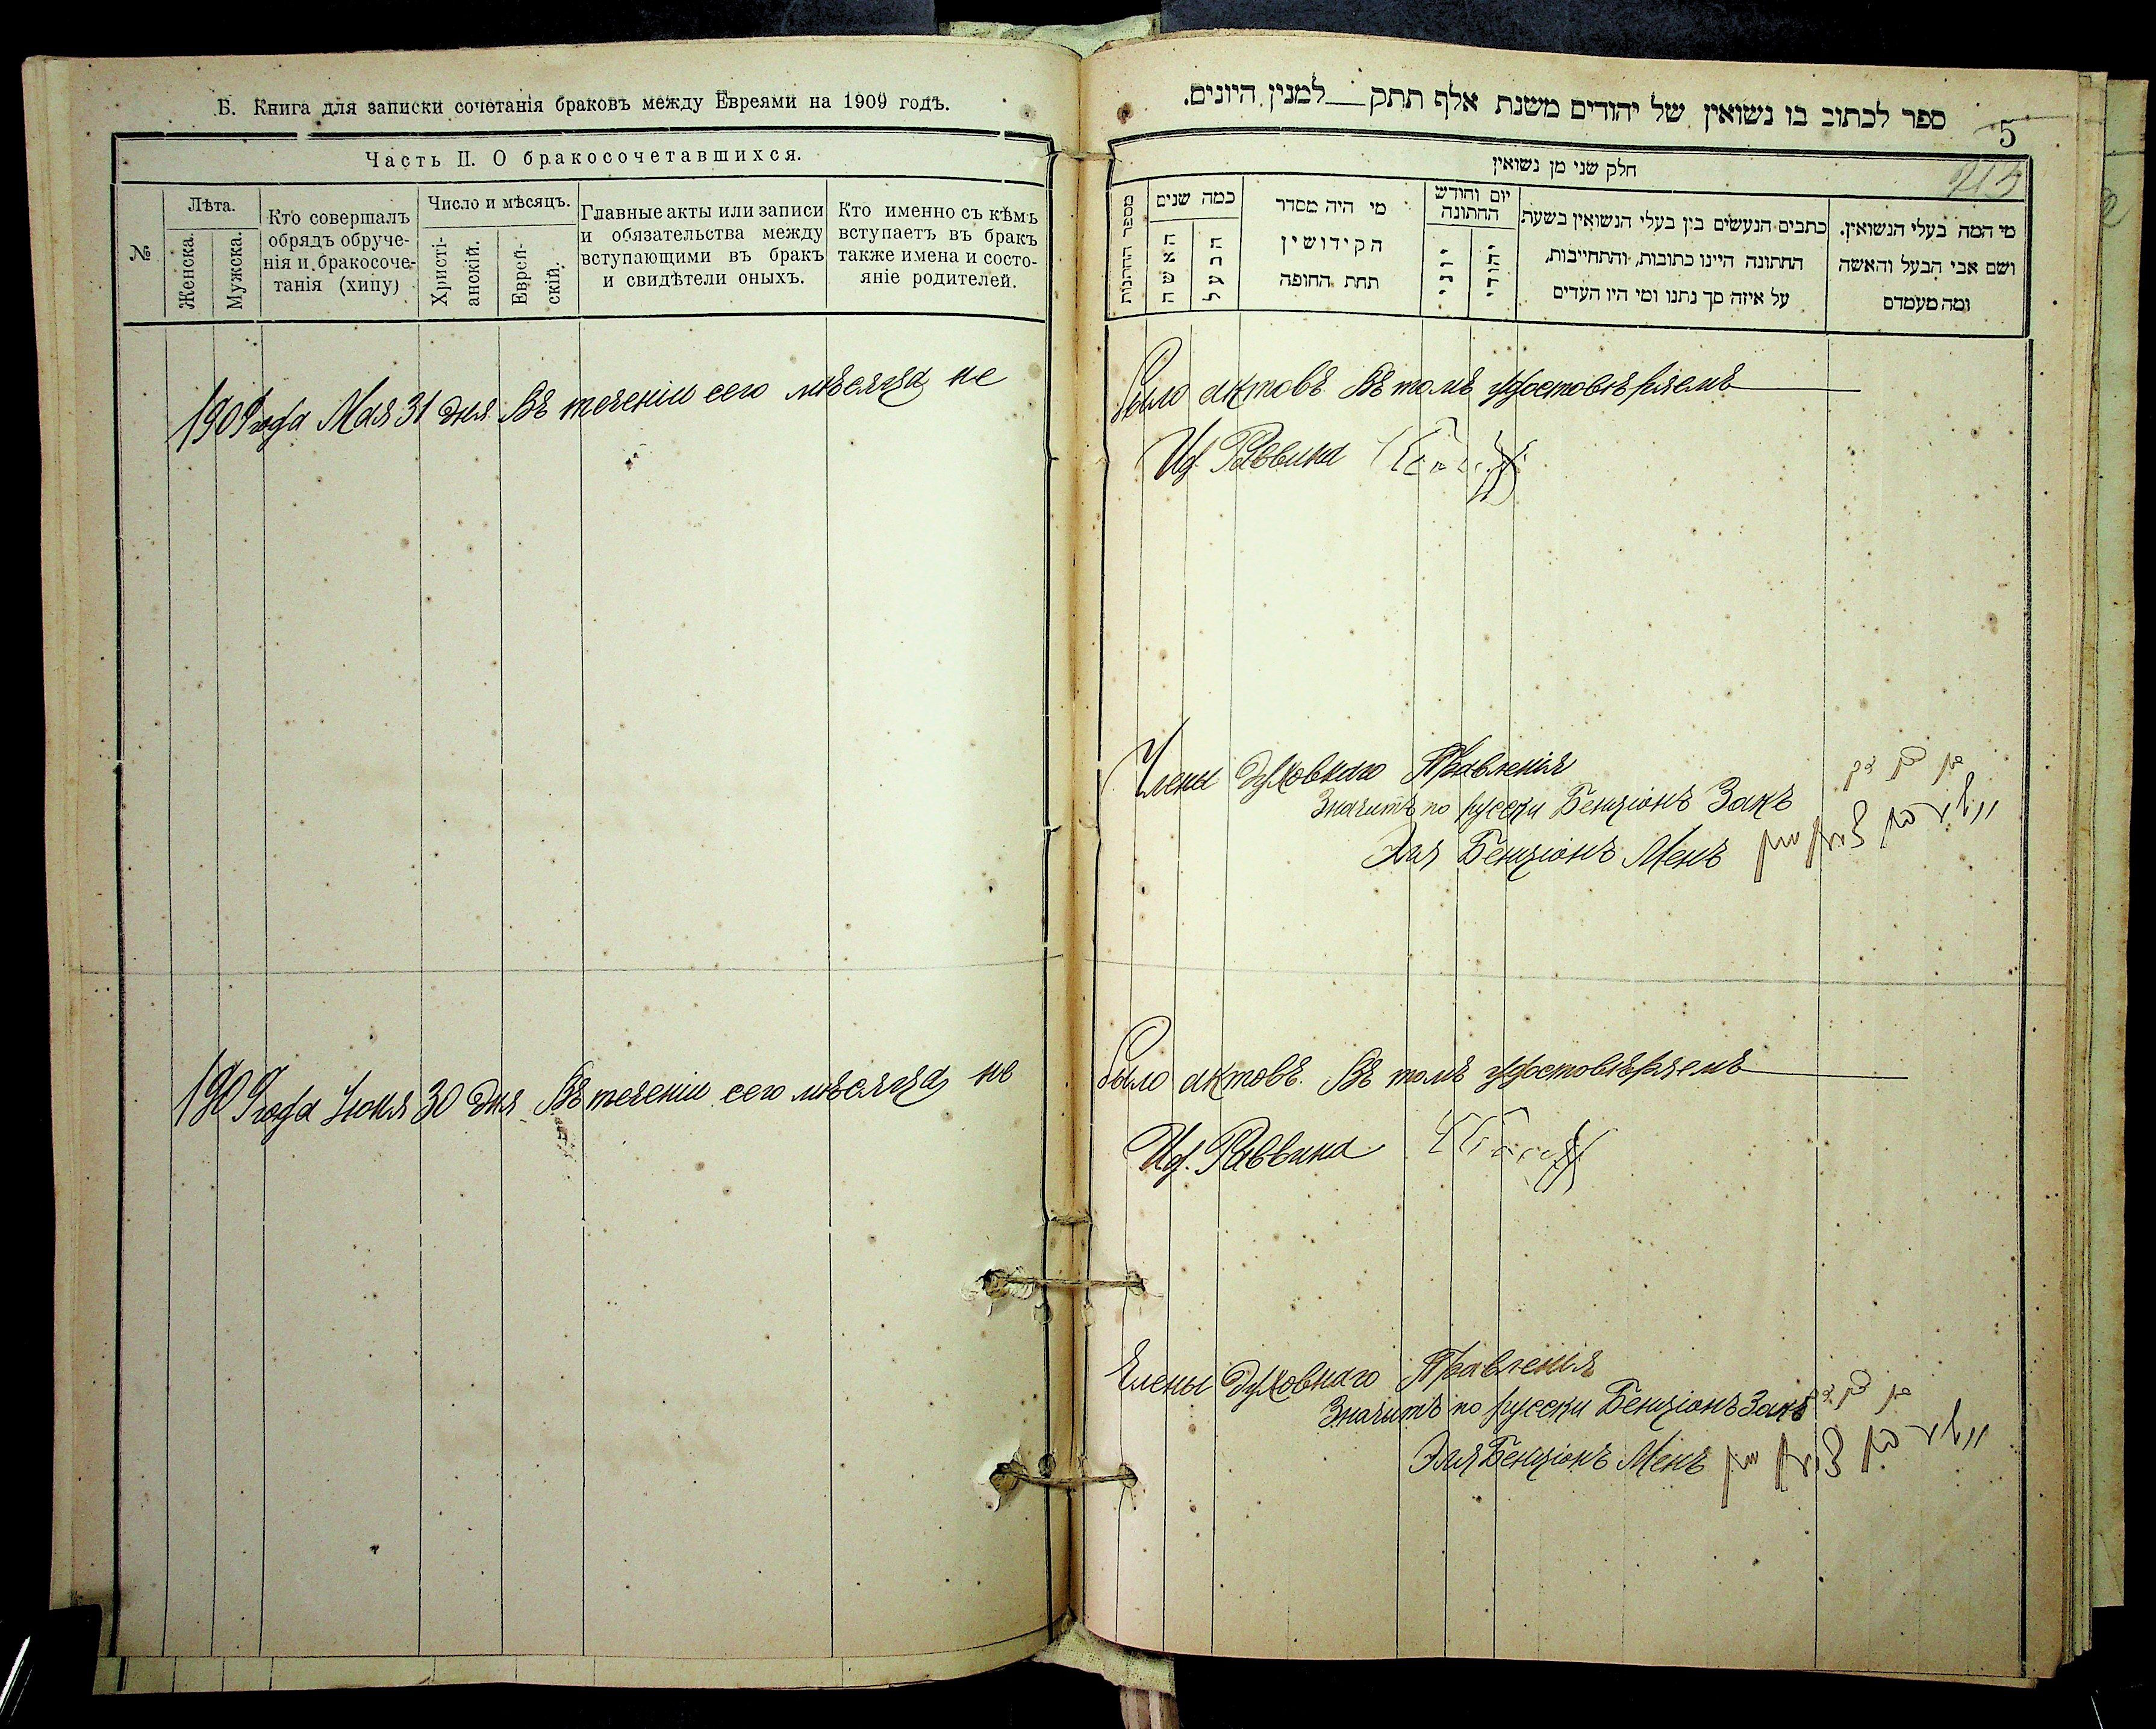 Б. Книга для записки сочетанія браковъ между Евреями на 1909 годъ.
Часть II. О бракосочетавшихся.
№
Лѣта.
Женска.
Мужска.
Кто совершалъ
обрядъ обруче-
нія и бракосоче-
танія (хипу)
Число и мѣсяцъ.
Христі-
анскій.
Еврей-
скій.
Главные акты или записи
и обязательства между
вступающими въ бракъ
и свидѣтели оныхъ.
Кто именно съ кѣмъ
вступаетъ въ бракъ
также имена и состо-
яніе родителей.
1909 года Мая 31 дня Въ теченіи сего мѣсяца не
1909 года Іюня 30 дня Въ теченіи сего мѣсяца не
ספר לכתוב בו נשואין של יהודים משנת אלף תתק למנין היונים.
5
חלק שני מן נשואין
מספר החתונות
כמה שנים
האשה
הבעל
מי היה מסדר
הקידושין
תחת החופה
יום וחודש
החתונה
יוני
יהודי
כתבים הנעשים בין בעלי הנשואין בשעת
החתונה היינו כתובות, והתחייבות,
על איזה סך נתנו ומי היו העדים
מי המה בעלי הנשואין.
ושם אבי הבעל והאשה
ומה מעמדם
было актовъ Въ томъ удостовѣряемъ
Иф. Раввина
Члены Духовнаго Правленія
Значитъ по русски Бенціонъ Закъ
בן ציון זק
Эля Бенціонъ Менъ
אליע בן ציון מען
было актовъ. Въ томъ удостовѣряемъ
Иф. Раввина
Члены Духовнаго Правленія
Значитъ по русски Бенціонъ Закъ
בן ציון זק
Эля Бенціонъ Менъ
אליע בן ציון מען